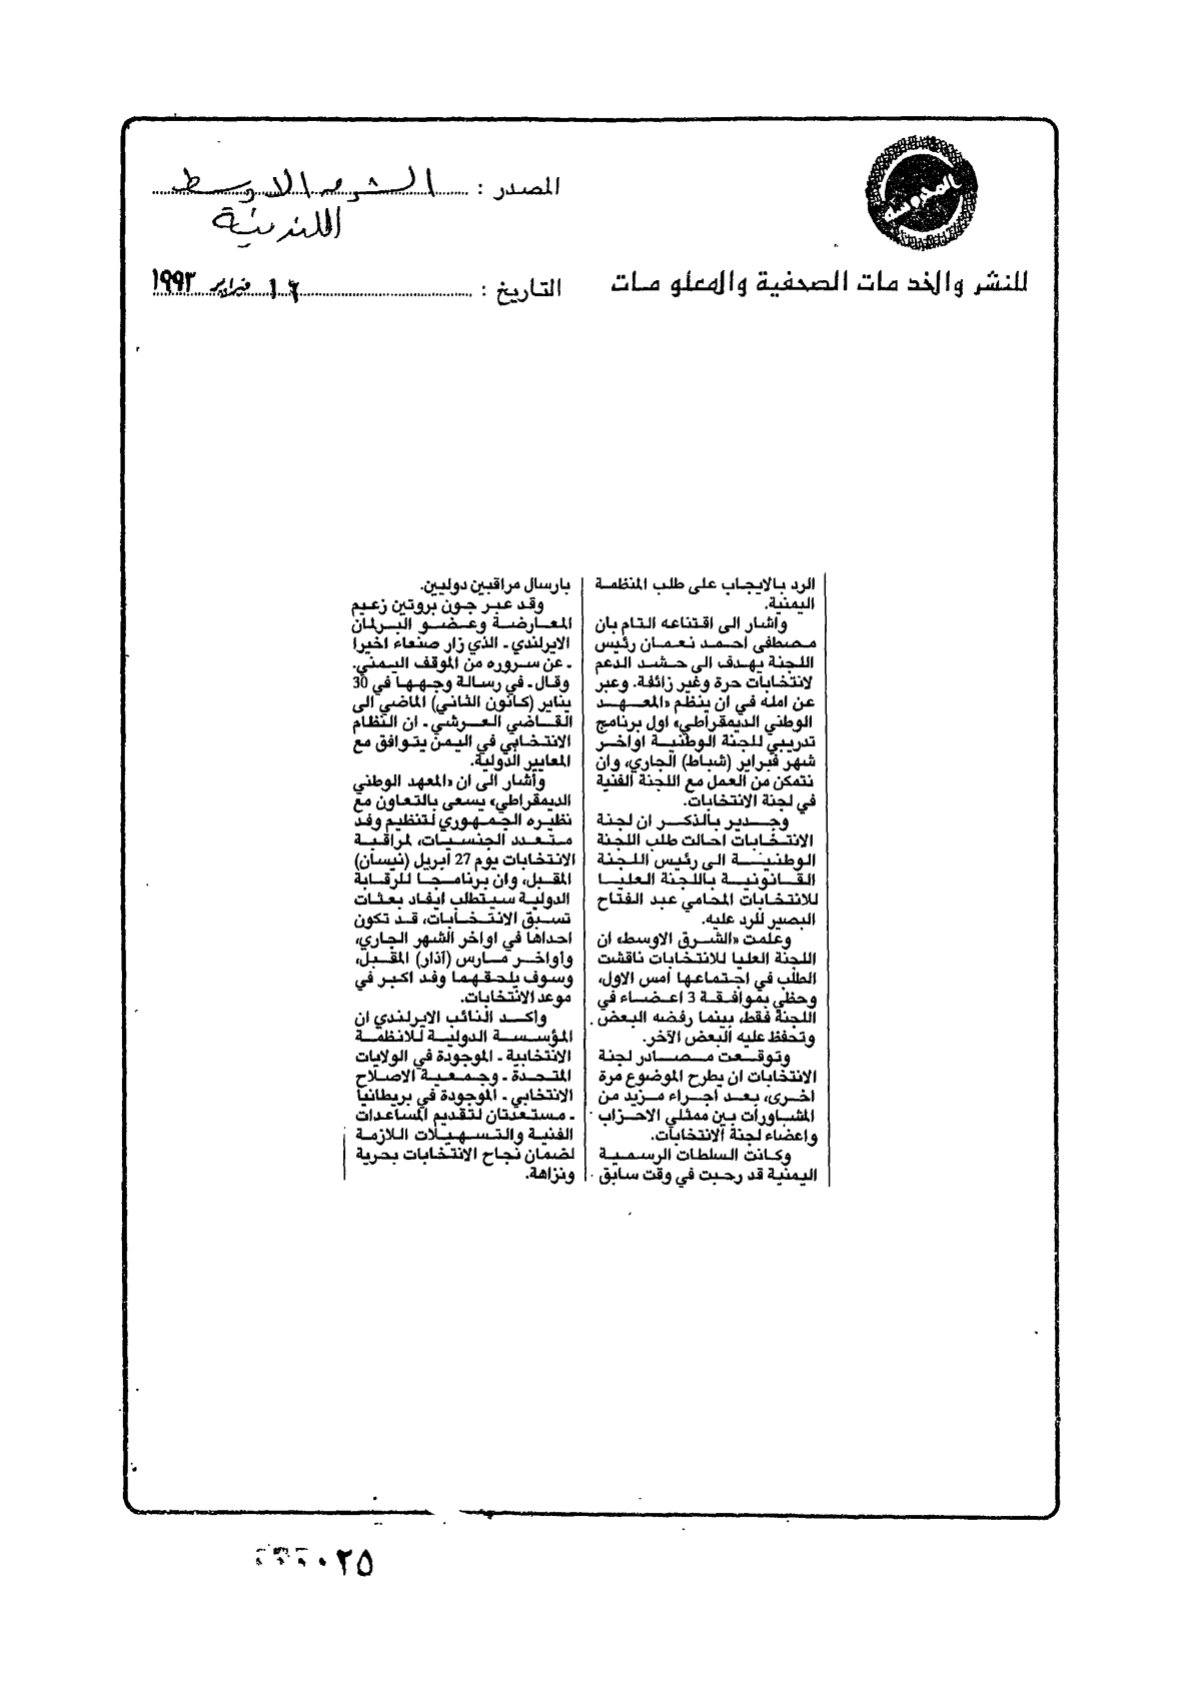 المحروسة
المصدر : الشرق الاوسط
اللندنية
للنشر والخدمات الصحفية والمعلومات
التاريخ : ١٦ فبراير ١٩٩٣
الرد بالايجاب على طلب المنظمة
اليمنية.
واشار الى اقتناعه التام بان
مصطفى احمد نعمان رئيس
اللجنة يهدف الى حشد الدعم
لانتخابات حرة وغير زائفة. وعبر
عن امله في ان ينظم «المعهد
الوطني الديمقراطي» اول برنامج
تدريبي للجنة الوطنية اواخر
شهر فبراير (شباط) الجاري، وان
نتمكن من العمل مع اللجنة الفنية
في لجنة الانتخابات.
وجدير بالذكر ان لجنة
الانتخابات احالت طلب اللجنة
الوطنية الى رئيس اللجنة
القانونية باللجنة العليا
للانتخابات المحامي عبد الفتاح
البصير للرد عليه.
وعلمت «الشرق الاوسط» ان
اللجنة العليا للانتخابات ناقشت
الطلب في اجتماعها امس الاول،
وحظي بموافقة 3 اعضاء في
اللجنة فقط، بينما رفضه البعض
وتحفظ عليه البعض الآخر.
وتوقعت مصادر لجنة
الانتخابات ان يطرح الموضوع مرة
اخرى، بعد اجراء مزيد من
المشاورات بين ممثلي الاحزاب
واعضاء لجنة الانتخابات.
وكانت السلطات الرسمية
اليمنية قد رحبت في وقت سابق
بارسال مراقبين دوليين.
وقد عبر جون بروتين زعيم
المعارضة وعضو البرلمان
الايرلندي - الذي زار صنعاء اخيرا
- عن سروره من الموقف اليمني.
وقال - في رسالة وجهها في 30
يناير (كانون الثاني) الماضي الى
القاضي العرشي - ان النظام
الانتخابي في اليمن يتوافق مع
المعايير الدولية.
وأشار الى ان «المعهد الوطني
الديمقراطي» يسعى بالتعاون مع
نظيره الجمهوري لتنظيم وفد
متعدد الجنسيات، لمراقبة
الانتخابات يوم 27 أبريل (نيسان)
المقبل، وان برنامجا للرقابة
الدولية سيتطلب ايفاد بعثات
تسبق الانتخابات، قد تكون
احداها في اواخر الشهر الجاري،
وأواخر مارس (آذار) المقبل،
وسوف يلحقهما وفد اكبر في
موعد الانتخابات.
واكد النائب الايرلندي ان
المؤسسة الدولية للانظمة
الانتخابية - الموجودة في الولايات
المتحدة - وجمعية الاصلاح
الانتخابي - الموجودة في بريطانيا
- مستعدتان لتقديم المساعدات
الفنية والتسهيلات اللازمة
لضمان نجاح الانتخابات بحرية
ونزاهة.